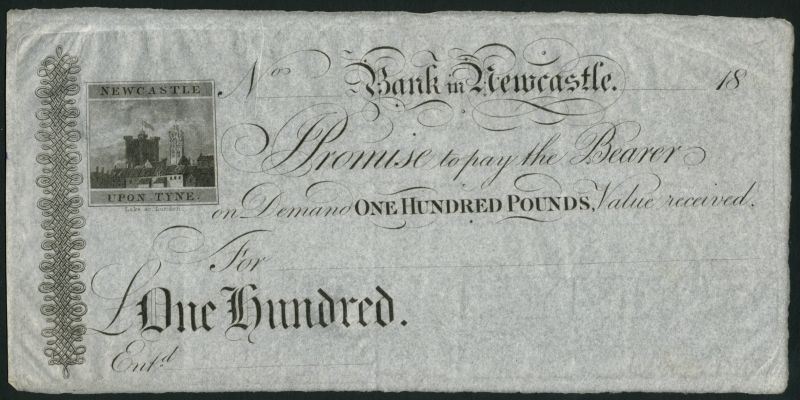 NEWCASTLE
UPON TYNE.
No Bank in Newcastle. 18
I Promise to pay the Bearer
on Demand ONE HUNDRED POUNDS, Value received.
For
£ One Hundred.
Entd